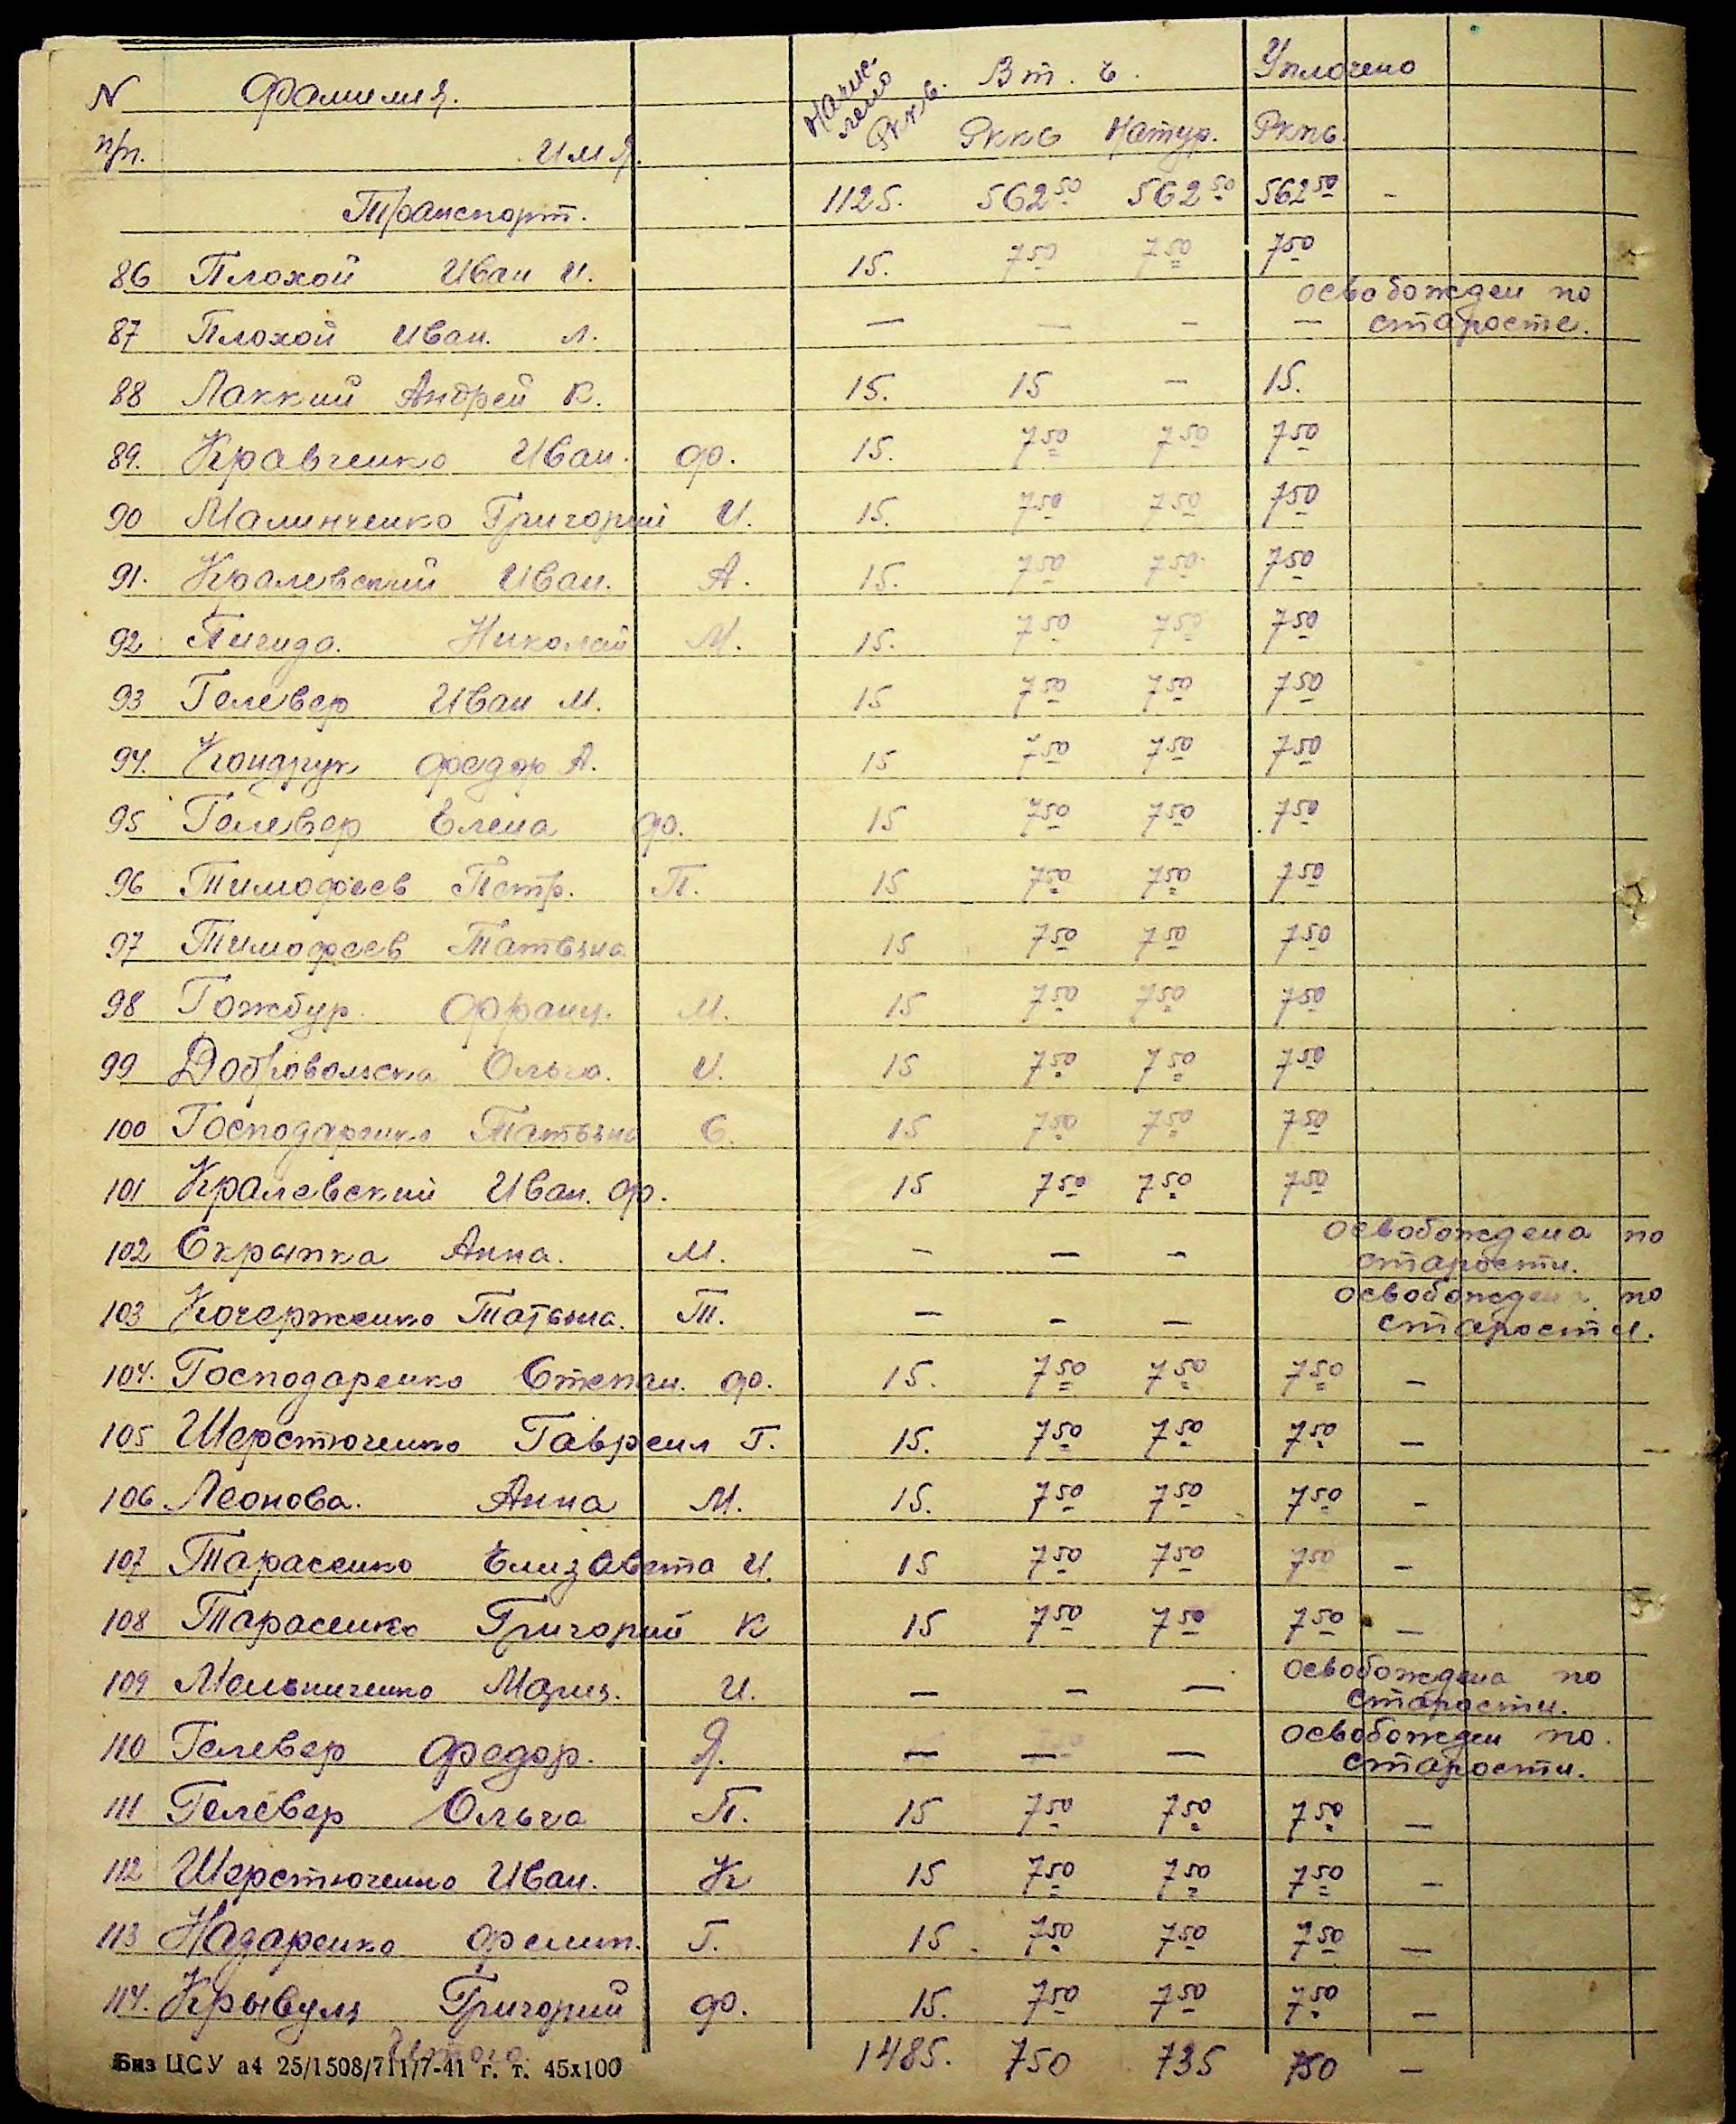 N Фамилия. Начис-лено Рккв. В т. ч. Уплочено
п/п. Имя. Ркко Натур. Ркко.
Транспорт. 1125. 562 50 562 50 562 50 -
86 Плохой Иван И. 15. 7 50 7 50 7 50
87 Плохой Иван. Л. — — - — освобожден по
старости.
88 Лаккий Андрей К. 15. 15 — 15.
89. Кравченко Иван. Ф. 15. 7 50 7 50 7 50
90 Малинченко Григорий И. 15. 7 50 7 50 7 50
91. Кралевский Иван. А. 15. 7 50 7 50 7 50
92 Пигида. Николай М. 15. 7 50 7 50 7 50
93 Гелевер Иван М. 15 7 50 7 50 7 50
94. Кондрук Федор А. 15 7 50 7 50 7 50
95 Гелевер Елена Ф. 15 7 50 7 50 7 50
96 Тимофеев Петр. П. 15 7 50 7 50 7 50
97 Тимофеев Татьяна 15 7 50 7 50 7 50
98 Гожбур Франц. И. 15 7 50 7 50 7 50
99 Добровольска Ольга. И. 15 7 50 7 50 7 50
100 Господаренко Татьяна С. 15 7 50 7 50 7 50
101 Кралевский Иван. Ф. 15 7 50 7 50 7 50
102 Скрыпка Анна. М. - — - освобождена по
старости.
103 Кочерженко Татьяна. Т. — - — освобождена по
старости.
104. Господаренко Степан. Ф. 15. 7 50 7 50 7 50 —
105 Шерстюченко Гавреил Г. 15. 7 50 7 50 7 50 —
106 Леонова. Анна М. 15. 7 50 7 50 7 50 -
107 Тарасенко Елизавета И. 15 7 50 7 50 7 50 —
108 Тарасенко Григорий К 15 7 50 7 50 7 50 —
109 Мельниченко Мария. И. — - — освобождена по
старости.
110 Гелевер Федор. Я. — — — освобожден по.
старости.
111 Гелевер Ольга П. 15 7 50 7 50 7 50 —
112 Шерстюченко Иван. К 15 7 50 7 50 7 50 —
113 Назаренко Филип. Г. 15. 7 50 7 50 7 50 —
114. Крывуля Григорий Ф. 15. 7 50 7 50 7 50 —
Итого 1485. 750 735 750 —
Биз ЦСУ а4 25/1508/711/7-41 г. т. 45х100